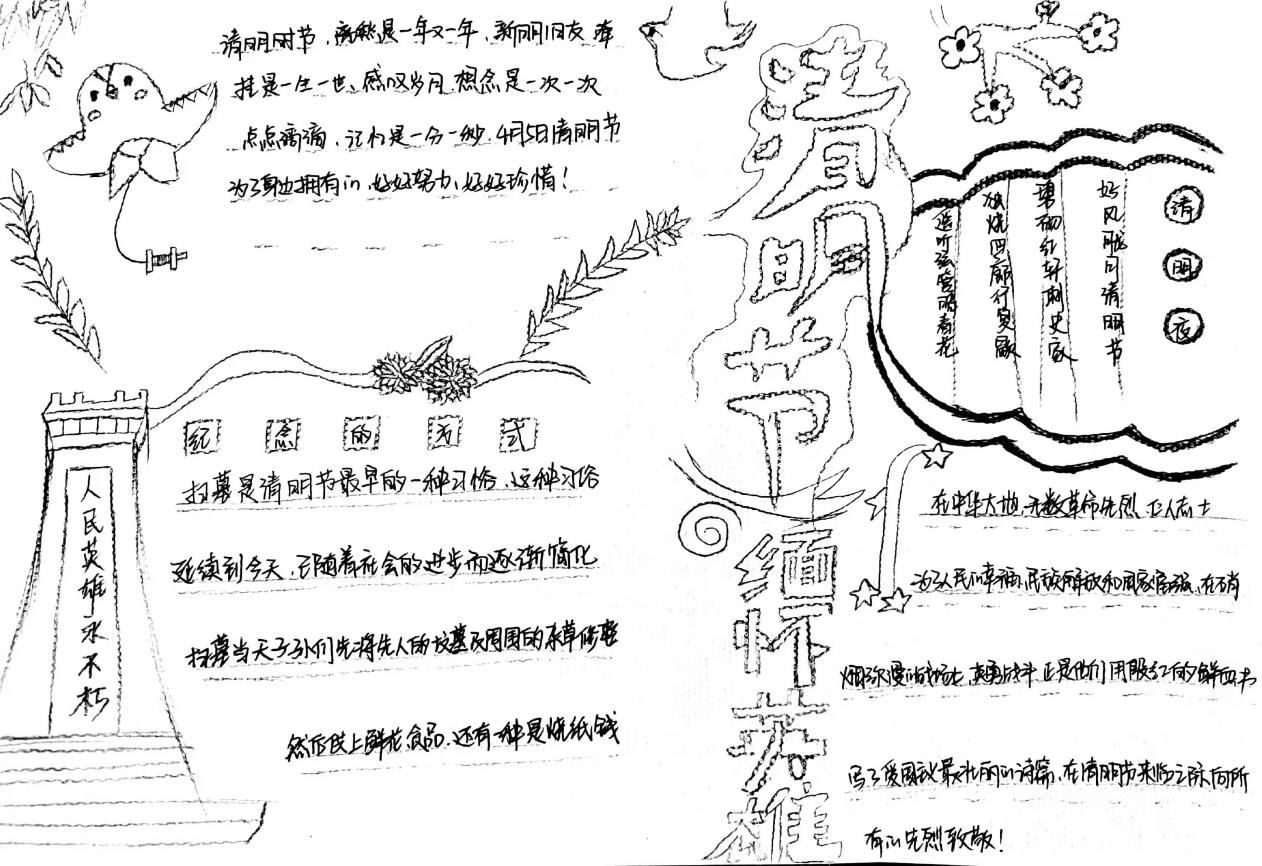 清明时节,离愁是一年又一年,新朋旧友 牵
挂是一生一世,感叹岁月,想念是一次一次
点点滴滴,记忆是一分一秒,4月5日清明节
为了身边拥有的,好好努力、好好珍惜!
纪念的方式
扫墓是清明节最早的一种习俗,这种习俗
延续到今天,已随着社会的进步而逐渐简化
扫墓当天子孙们先将先人的坟墓及周围的杂草修整
然后供上鲜花食品,还有一种是烧纸钱
人民英雄永不朽
清明节
缅怀英雄
清明夜
好风胧月清明节
碧砌红轩刺史家
独绕回廊行复歇
遥听弦管暗看花
在中华大地,无数革命先烈,仁人志士
为了人民的幸福,民族解放和国家富强,在硝
烟弥漫的战场上,英勇战斗,正是他们用殷红的鲜血书
写了爱国主义最壮丽的诗篇,在清明节来临之际向所
有的先烈致敬!